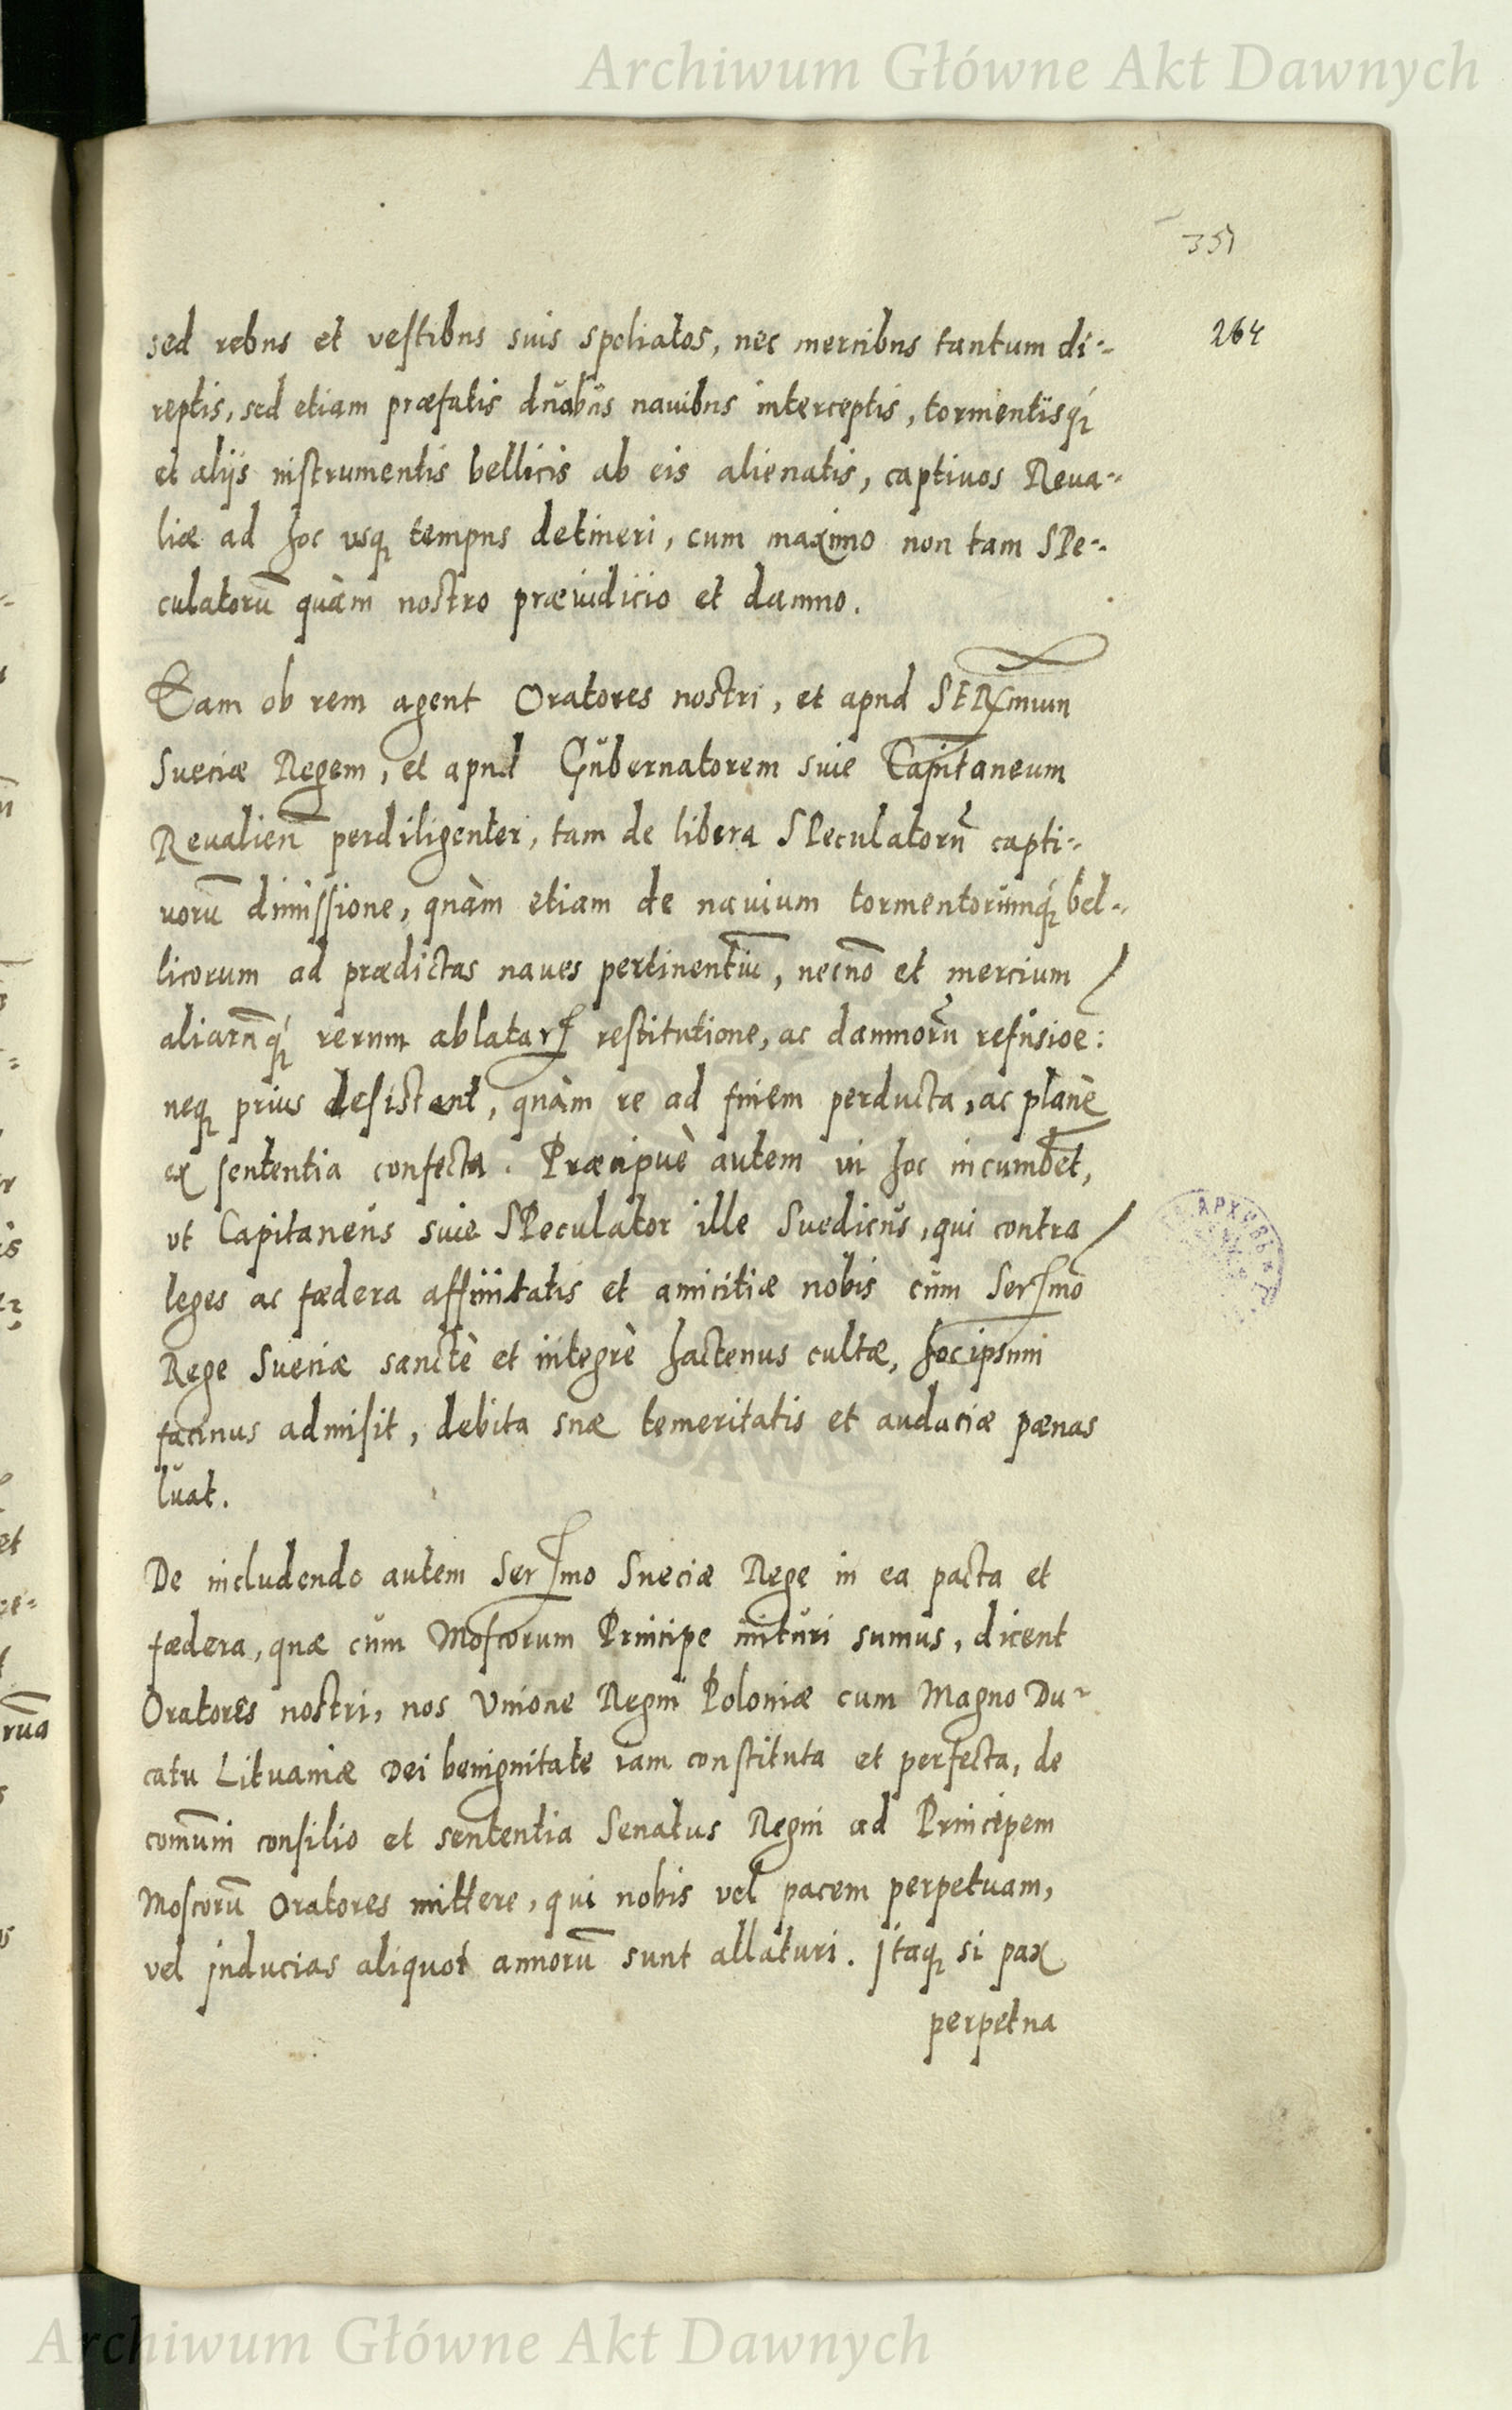 Archiwum Główne Akt Dawnych
351
264
sed rebus et vestibus suis spoliatos, nec mercibus tantum di-
reptis, sed etiam præfatis duabus nauibus interceptis, tormentisq́
et alijs instrumentis bellicis ab eis alienatis, captiuos Reua-
liæ ad hoc usq tempus detineri, cum maximo non tam SPe-
culatorū quàm nostro præiudicio et damno.
Eam ob rem agent Oratores nostri, et apud SERmum
Sueciæ Regem, et apud Gubernatorem siue Capitaneum
Reualień perdiligenter, tam de libera SPeculatorū capti-
uorū dimissione, quàm etiam de nauium tormentorumq́ bel-
licorum ad prædictas naues pertinentiū, necnō et mercium
aliarūq́ rerum ablatar restitutione, ac damnorū refusioē:
neq prius desistant, quàm re ad finem perducta, ac planè
ex sententia confecta. Præcipuè autem in hoc incumbēt,
vt Capitaneus siue SPeculator ille Suedicus, qui contra
leges ac fædera affinitatis et amicitiæ nobis cum Sersmo
Rege Sueciæ sanctè et integrè hactenus cultæ, hoc ipsum
facinus admisit, debita suæ temeritatis et audaciæ pænas
luat.
De includendo autem Sersmo Sueciæ Rege in ea pacta et
fædera, quæ cum Moscorum Principe inituri sumus, dicent
Oratores nostri, nos Vnione Regni Poloniæ cum Magno Du-
catu Lituaniæ Dei benignitate iam constituta et perfecta, de
comūni consilio et sententia Senatus Regni ad Principem
Moscorū Oratores mittere, qui nobis vel pacem perpetuam,
vel inducias aliquot annorū sunt allaturi. Itaq si pax
perpetua
Archiwum Główne Akt Dawnych